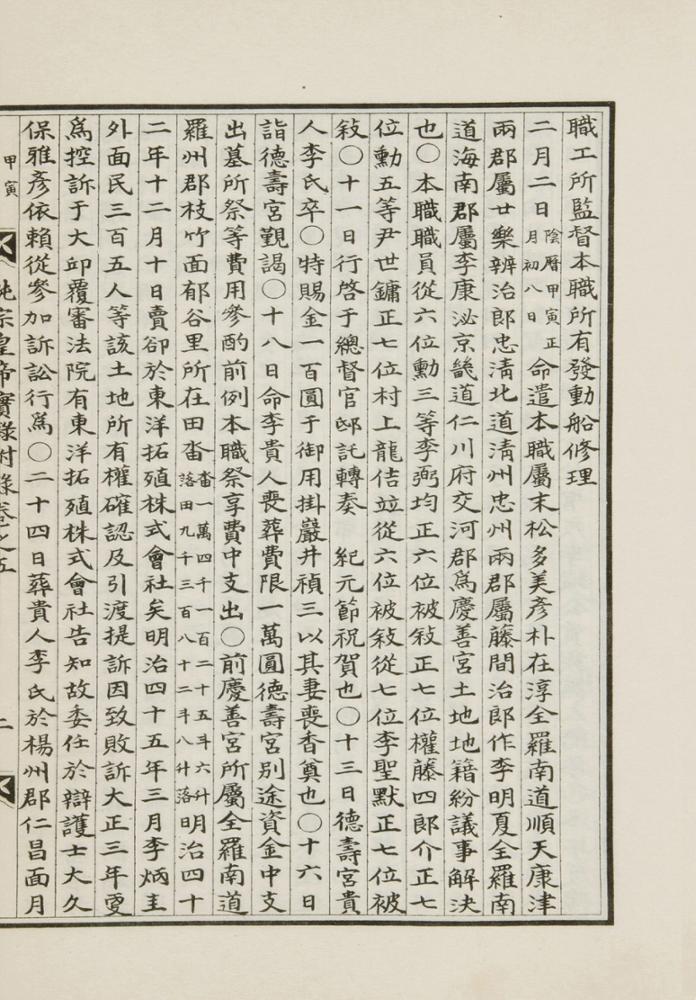 職工所監督本職所有發動船修理
二月二日陰曆甲寅正月初八日命遣本職屬末松多美彥朴在淳全羅南道順天康津
兩郡屬廿樂辨治郎忠淸北道淸州忠州兩郡屬藤間治郎作李明夏全羅南
道海南郡屬李康泌京畿道仁川府交河郡爲慶善宮土地地籍紛議事解決
也〇本職職員從六位勳三等李弼均正六位被敍正七位權藤四郎介正七
位勳五等尹世鏞正七位村上龍佶竝從六位被敍從七位李聖默正七位被
敍〇十一日行啓于總督官邸託轉奏　紀元節祝賀也〇十三日德壽宮貴
人李氏卒〇特賜金一百圓于御用掛嚴井禎三以其妻喪香奠也〇十六日
詣德壽宮覲謁〇十八日命李貴人喪葬費限一萬圓德壽宮別途資金中支
出墓所祭等費用參酌前例本職祭享費中支出〇前慶善宮所屬全羅南道
羅州郡枝竹面郁谷里所在田畓畓一萬四千一百二十五斗六升落田九千三百八十二斗八升落明治四十
二年十二月十日賣卻於東洋拓殖株式會社矣明治四十五年三月李炳圭
外面民三百五人等該土地所有權確認及引渡提訴因致敗訴大正三年更
爲控訴于大邱覆審法院有東洋拓殖株式會社告知故委任於辯護士大久
保雅彥依賴從參加訴訟行爲〇二十四日葬貴人李氏於楊州郡仁昌面月
甲寅　純宗皇帝實錄附錄卷之五　二